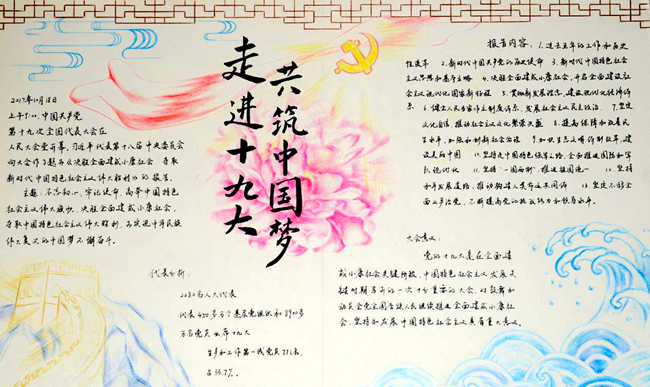 走进十九大
共筑中国梦
2017年10月18日
上午9:00,中国共产党
第十九次全国代表大会在
人民大会堂开幕,习近平代表第十八届中央委员会
向大会作了题为《决胜全面建成小康社会 夺取
新时代中国特色社会主义伟大胜利》的报告。
主题:不忘初心,牢记使命,高举中国特色
社会主义伟大旗帜,决胜全面建成小康社会,
夺取中国特色社会主义伟大胜利,为实现中华民族
伟大复兴的中国梦不懈奋斗。
代表分析:
2280名人大代表
代表450多万个基层党组织和8900多
万名党员出席十九大
生产和工作第一线党员771名,
占33.7%。
报告内容:1.过去五年的工作和历史
性变革 2.新时代中国共产党的历史使命 3.新时代中国特色社会
主义思想和基本方略 4.决胜全面建成小康社会,开启全面建设社会
主义现代化国家新征程 5.贯彻新发展理念,建设现代化经济体
系 6.健全人民当家作主制度体系,发展社会主义民主政治 7.坚定
文化自信 推动社会主义文化繁荣兴盛 8.提高保障和改善民
生水平,加强和创新社会治理 9.加快生态文明体制改革,建
设美丽中国 10.坚持走中国特色强军之路,全面推进国防和军
队现代化 11.坚持"一国两制",推进祖国统一 12.坚持
和平发展道路,推动构建人类命运共同体 13.坚定不移全
面从严治党,不断提高党的执政能力和领导水平。
大会意义:
党的十九大是在全面建
成小康社会关键阶段,中国特色社会主义发展关
键时期召开的一次十分重要的大会,对鼓舞和
动员全党全国各族人民继续推进全面建成小康社
会、坚持和发展中国特色社会主义具有重大意义。